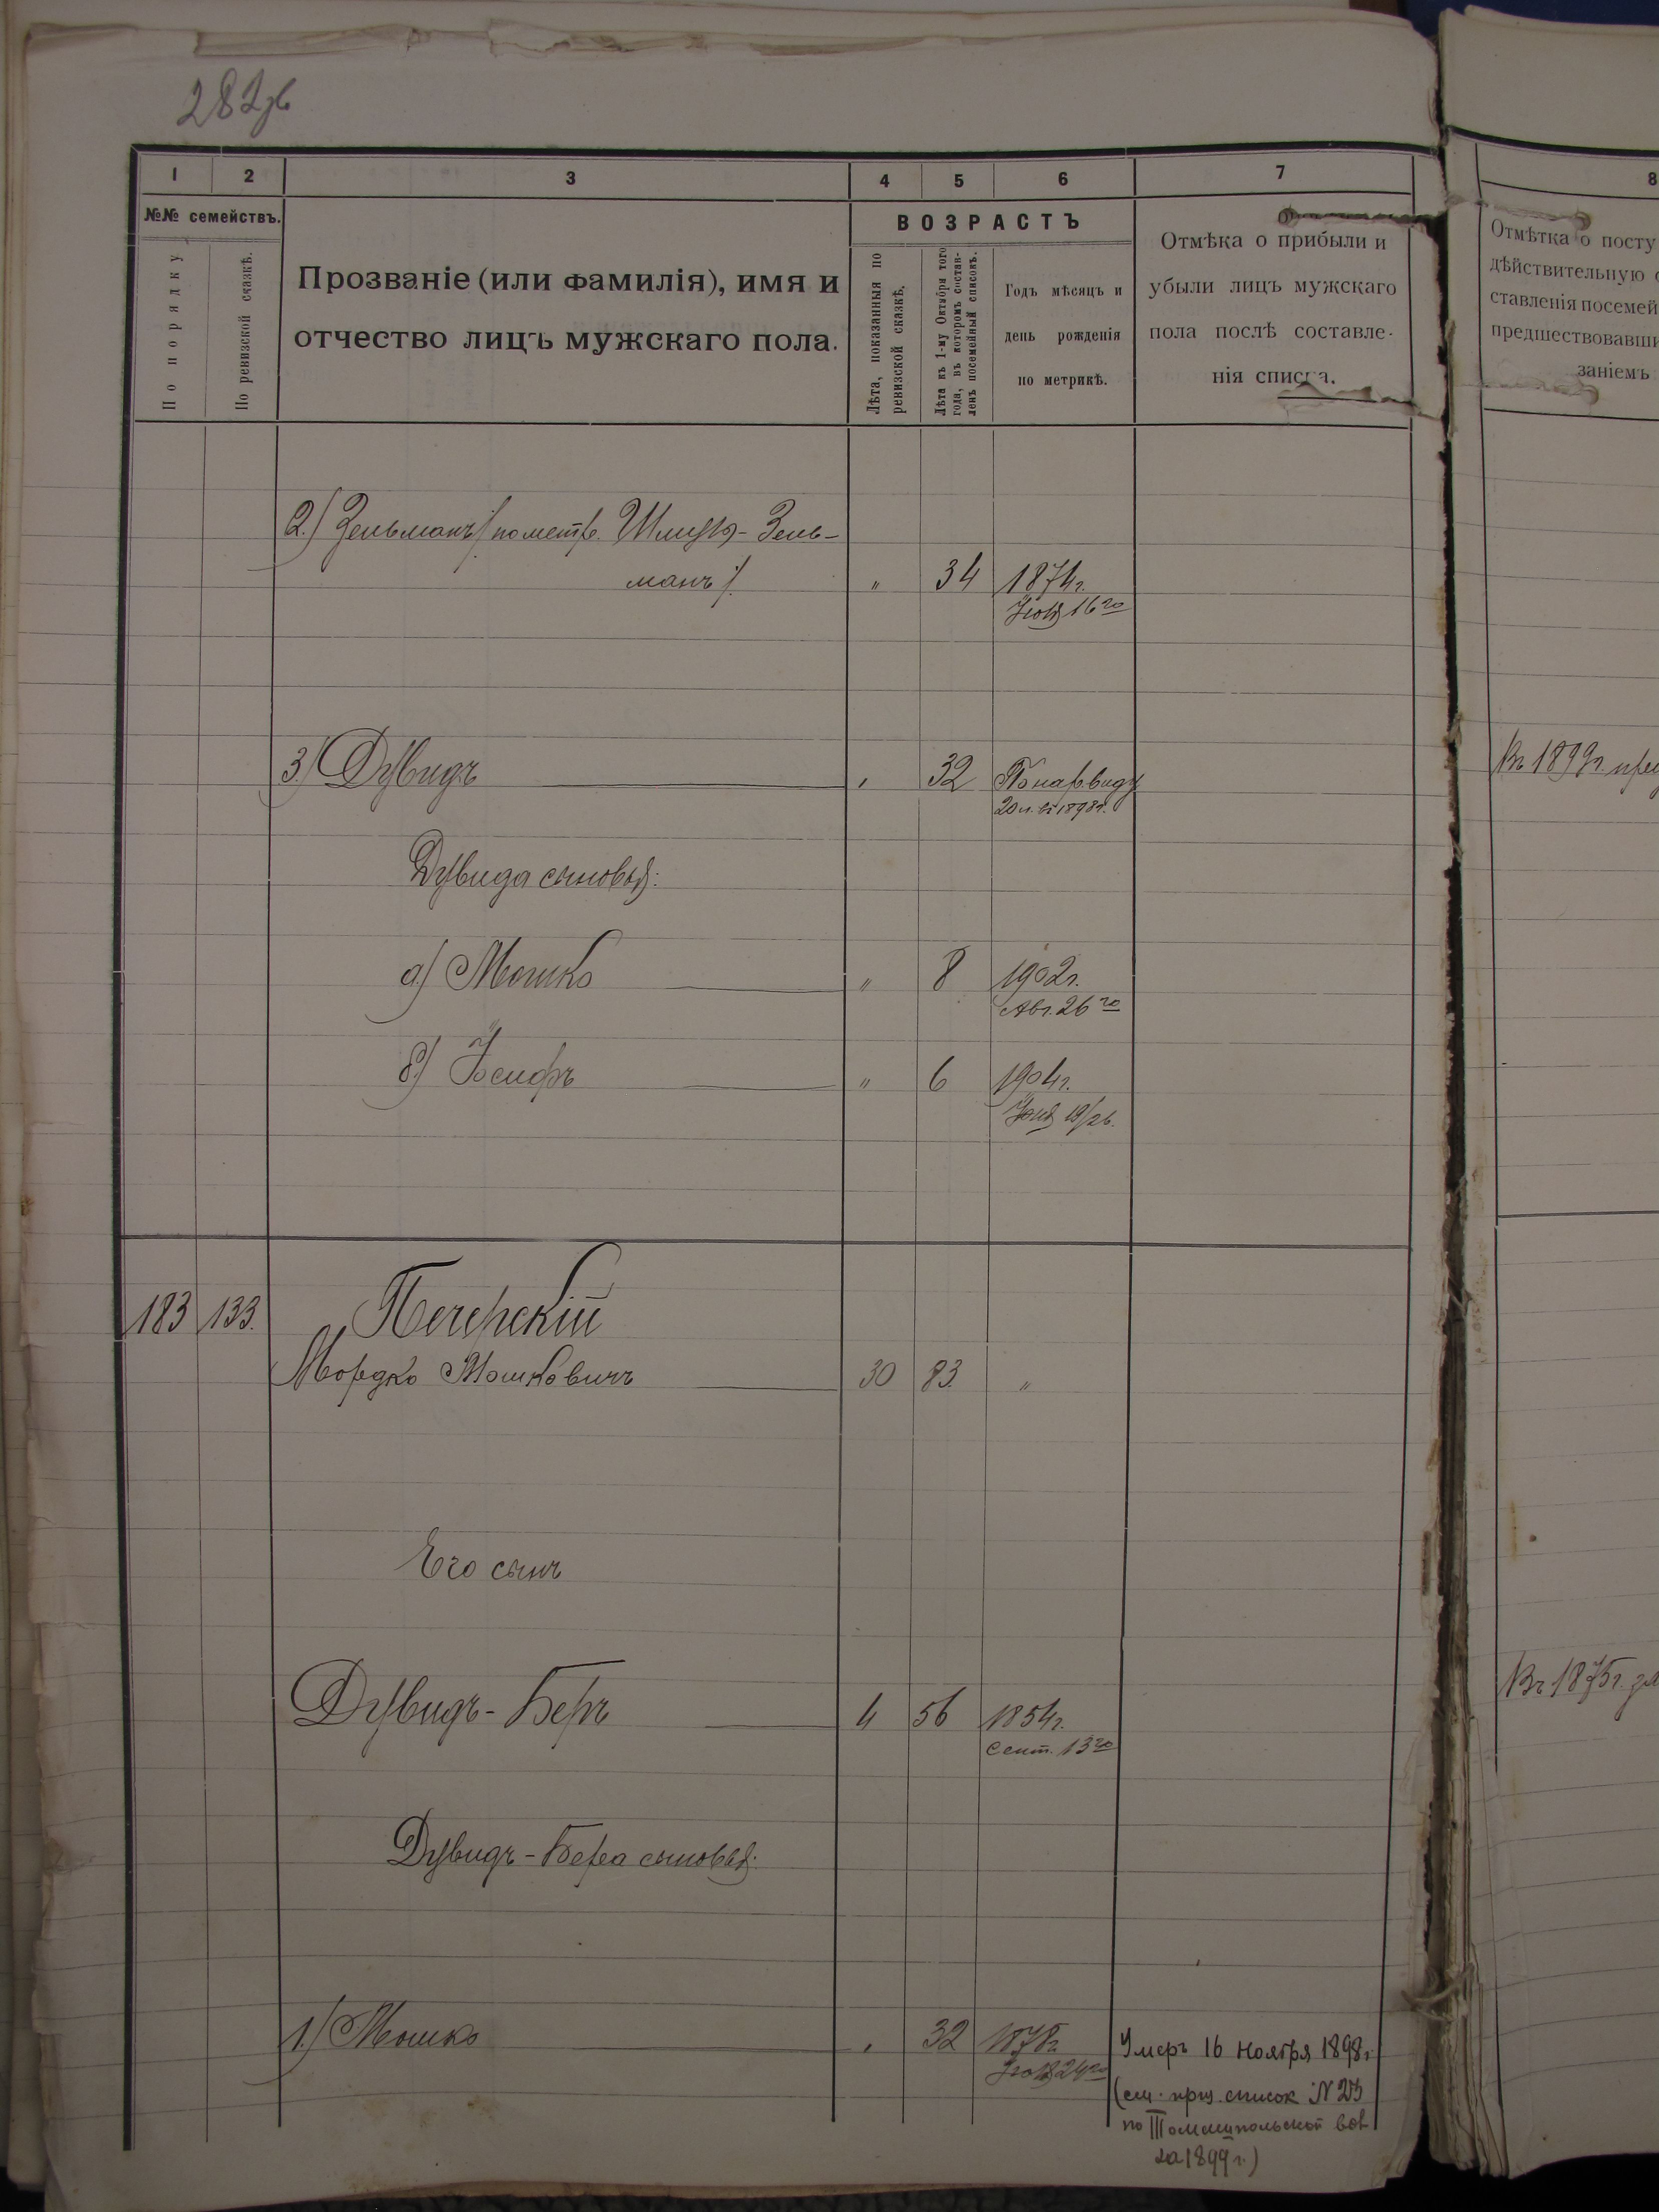 282зв
1 2 3 4 5 6 7 8
№№ семействъ.
По порядку.
По ревизской сказкѣ.
Прозваніе (или фамилія), имя и
отчество лицъ мужскаго пола.
ВОЗРАСТЪ
Лѣта, показанныя по
ревизской сказкѣ.
Лѣта къ 1-му Октября того
года, въ которомъ состав-
ленъ посемейный списокъ.
Годъ мѣсяцъ и
день рожденія
по метрикѣ.
Отмѣка о прибыли и
убыли лицъ мужскаго
пола послѣ составле-
нія списка.
Отмѣтка о посту
дѣйствительную
ставленія посемей
предшествовавши
заніемъ
2.) Зельманъ /: по метр. Шлиома-Зель-
манъ :/ " 34 1874г.
16го
3.) Дувидъ " 32 По нар. виду
20 л. въ 1898г.
Въ 1899г.
Дувида сыновья:
а) Мошко " 8 1902г.
Авг. 26го
б) Іосифъ " 6 1904г.
19/26.
183 133. Печерскій
Мордко Мошковичъ 30 83. "
Его сынъ
Дувидъ-Беръ 4 56 1854г.
Сент. 13го
Въ 1875г.
Дувидъ-Бера сыновья:
1.) Мошко " 32 1878г.
24го
Умеръ 16 Ноября 1898г.
(см. приз. список № 23
по Томашпольской вол
за 1899г.)